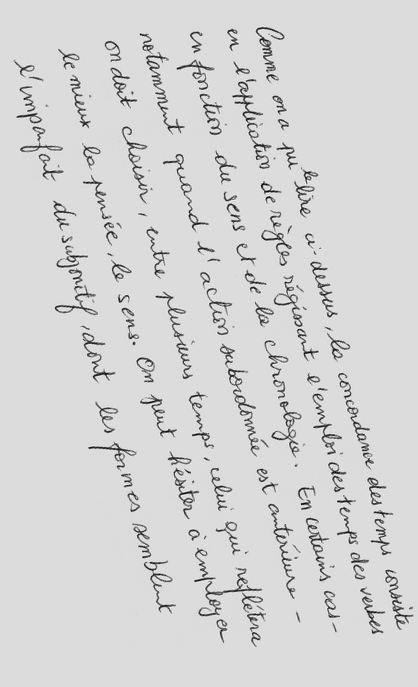 Comme on a pu le lire ci-dessus, la concordance des temps consiste
en l'application de règles régissant l'emploi des temps des verbes
en fonction du sens et de la chronologie. En certains cas -
notamment quand l'action subordonnée est antérieure -
on doit choisir, entre plusieurs temps, celui qui reflétera
le mieux la pensée, le sens. On peut hésiter à employer
l'imparfait du subjontif, dont les formes semblent